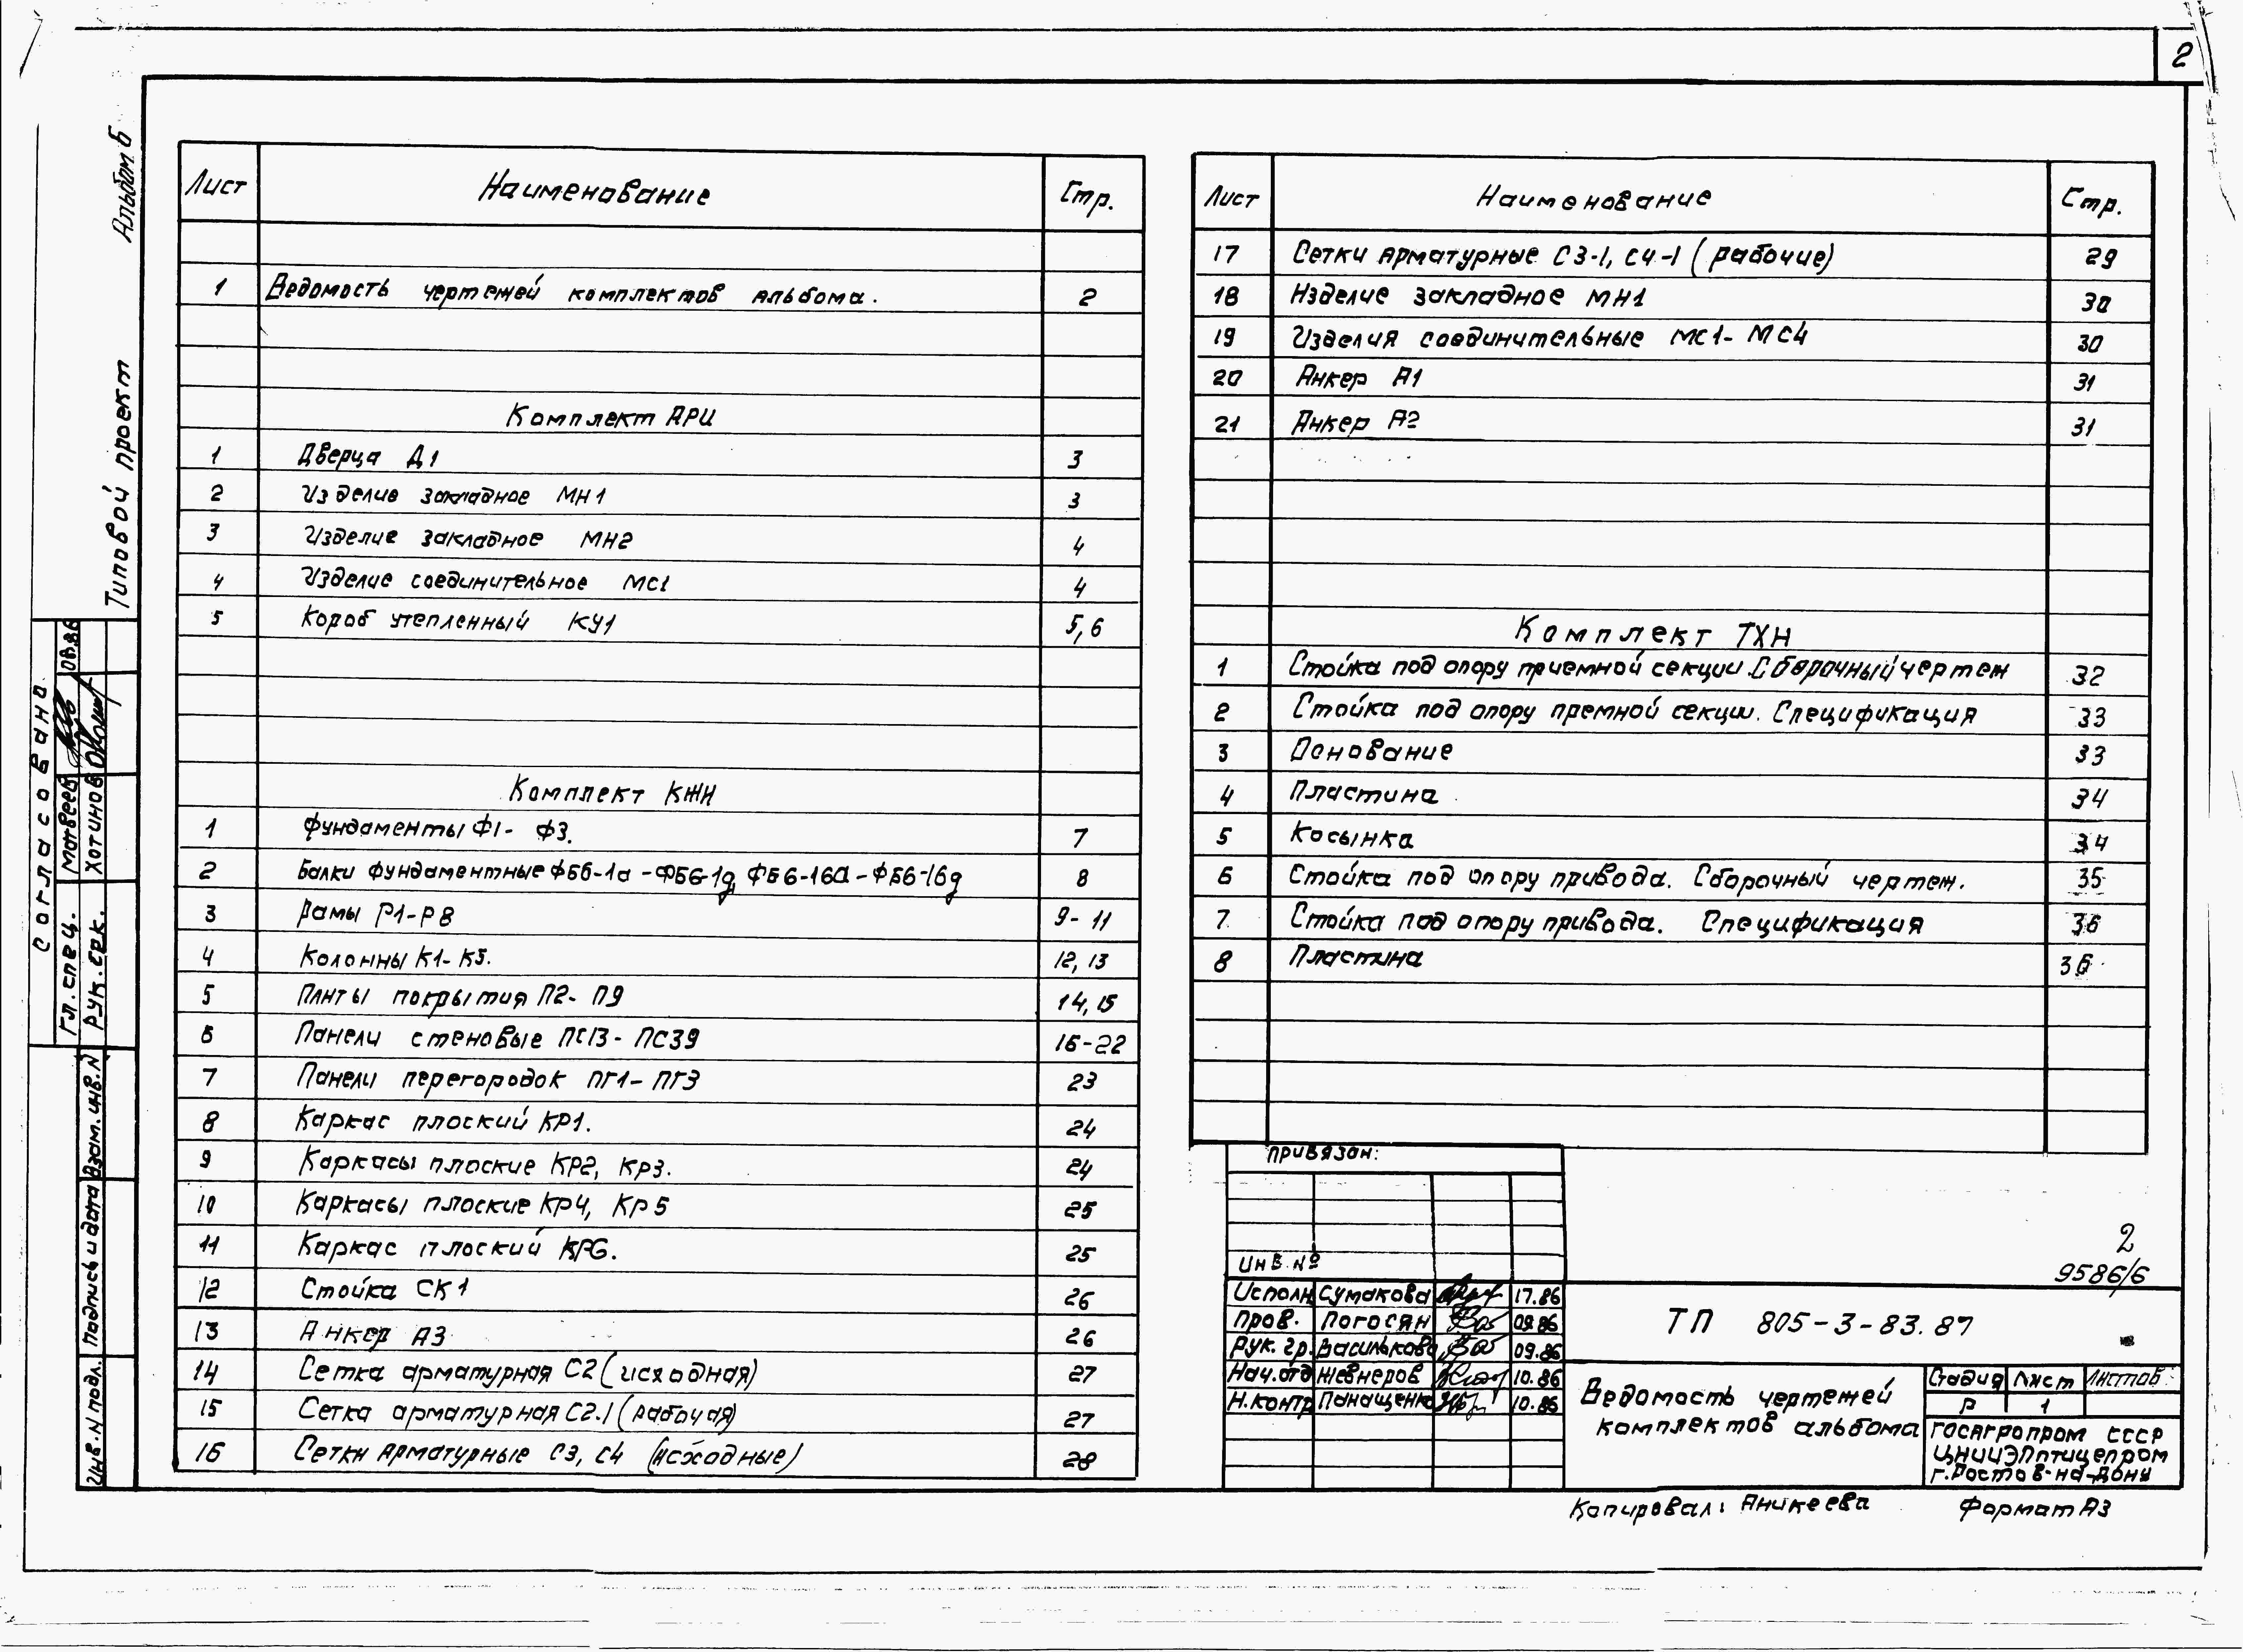 2
Альбом 6
Типовой проект
Лист Наименование Стр.
1 Ведомость чертежей комплектов альбома. 2
Комплект АРИ
1 Дверца Д1 3
2 Изделие закладное МН1 3
3 Изделие закладное МН2 4
4 Изделие соединительное МС1 4
5 Короб утепленный КУ1 5,6
Комплект КЖИ
1 Фундаменты Ф1- Ф3. 7
2 Балки фундаментные ФБ6-1а-ФБ6-1д, ФБ6-16а-ФБ6-16д 8
3 Рамы Р1-Р8 9-11
4 Колонны К1-К5. 12, 13
5 Плиты покрытия П2- П9 14, 15
6 Панели стеновые ПС13- ПС39 16-22
7 Панели перегородок ПГ1- ПГ3 23
8 Каркас плоский КР1. 24
9 Каркасы плоские КР2, КР3. 24
10 Каркасы плоские Кр4, Кр5 25
11 Каркас плоский КР6. 25
12 Стойка СК1 26
13 Анкер А3 26
14 Сетка арматурная С2 (исходная) 27
15 Сетка арматурная С2.1 (рабочая) 27
16 Сетки арматурные С3, С4 (исходные) 28
Лист Наименование Стр.
17 Сетки арматурные С3-1, С4-1 (рабочие) 29
18 Изделие закладное МН1 30
19 Изделия соединительные МС1- МС4 30
20 Анкер А1 31
21 Анкер А2 31
Комплект ТХН
1 Стойка под опору приемной секции. Сборочный чертеж 32
2 Стойка под опору премной секции. Спецификация 33
3 Основание 33
4 Пластина 34
5 Косынка 34
6 Стойка под опору привода. Сборочный чертеж. 35
7. Стойка под опору привода. Спецификация 36
8 Пластина 36
Согласовано
Гл. спец. Матвеев 08.86
Рук. сек. Хотинов
Взам. инв. N
Подпись и дата
Инв. N подл.
Привязан:
Инв. №
Исполн. Сумакова 17.86
Пров. Погосян 09.86
Рук. гр. Василькова 09.86
Нач. отд Жевнеров 10.86
Н. контр Панащенко 10.86
2
9586/6
ТП 805-3-83.87
Ведомость чертежей
комплектов альбома
Стадия Лист Листов
Р 1
Госагропром СССР
ЦНИИЭПптицепром
г. Ростов-на-Дону
Копировал: Аникеева Формат А3